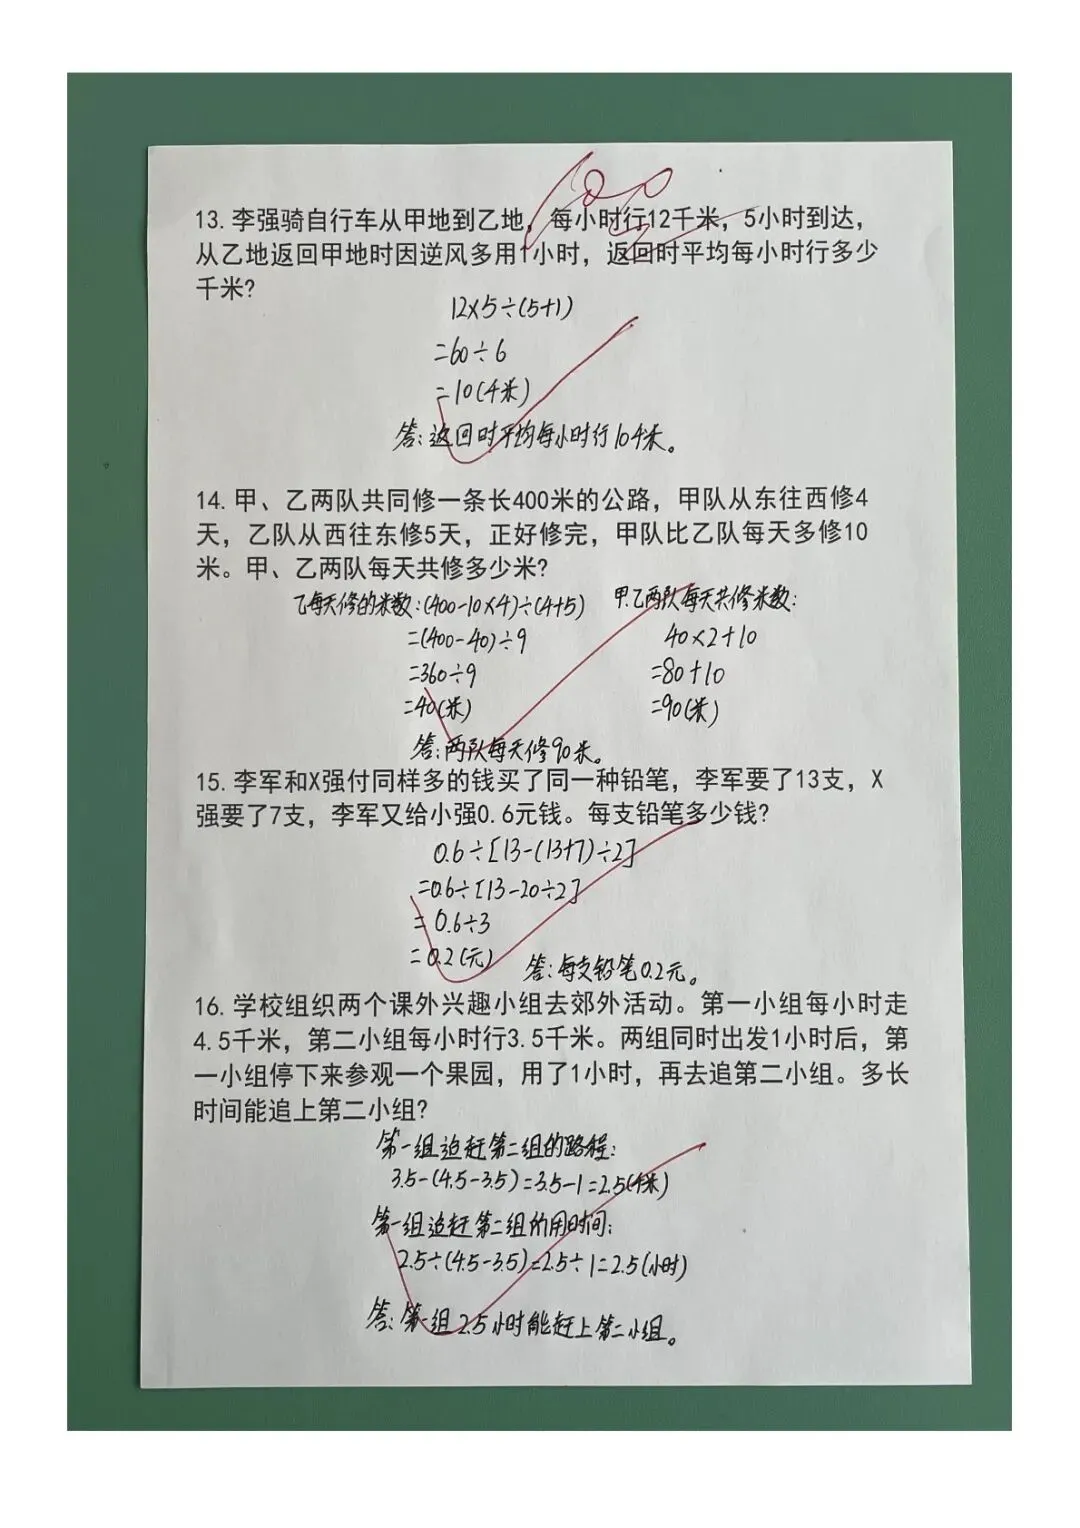 100
13. 李强骑自行车从甲地到乙地，每小时行12千米，5小时到达，
从乙地返回甲地时因逆风多用1小时，返回时平均每小时行多少
千米?
12×5÷(5+1)
=60÷6
=10(千米)
答:返回时平均每小时行10千米。
14. 甲、乙两队共同修一条长400米的公路，甲队从东往西修4
天，乙队从西往东修5天，正好修完，甲队比乙队每天多修10
米。甲、乙两队每天共修多少米?
乙每天修的米数:(400-10×4)÷(4+5)
=(400-40)÷9
=360÷9
=40(米)
甲.乙两队每天共修米数:
40×2+10
=80+10
=90(米)
答:两队每天修90米。
15. 李军和X强付同样多的钱买了同一种铅笔，李军要了13支，X
强要了7支，李军又给小强0.6元钱。每支铅笔多少钱?
0.6÷[13-(13+7)÷2]
=0.6÷[13-20÷2]
=0.6÷3
=0.2(元)
答:每支铅笔0.2元。
16. 学校组织两个课外兴趣小组去郊外活动。第一小组每小时走
4.5千米，第二小组每小时行3.5千米。两组同时出发1小时后，第
一小组停下来参观一个果园，用了1小时，再去追第二小组。多长
时间能追上第二小组?
第一组追赶第二组的路程:
3.5-(4.5-3.5)=3.5-1=2.5(千米)
第一组追赶第二组的用时间:
2.5÷(4.5-3.5)=2.5÷1=2.5(小时)
答:第一组2.5小时能赶上第二小组。